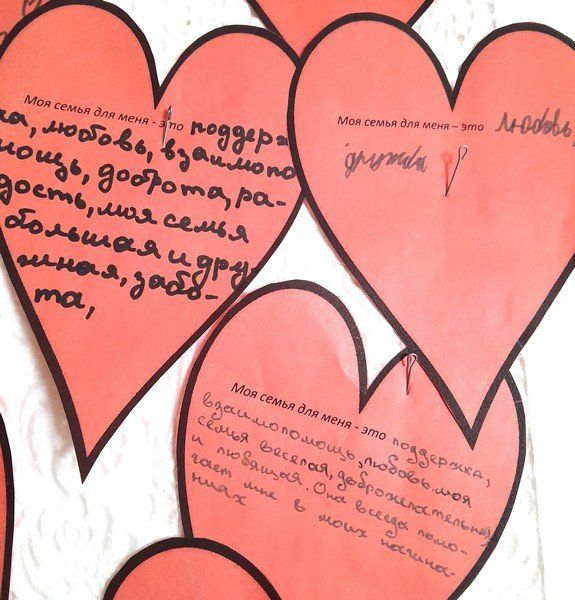 Моя семья для меня - это поддерж-
ка, любовь, взаимопо
мощь, доброта, ра-
дость, моя семья
большая и дру-
жная, забо-
та,
Моя семья для меня – это любовь,
дружба
Моя семья для меня - это поддержка,
взаимопомощь, любовь. моя
семья веселая, доброжелательная
и любящая. Она всегда помо-
гает мне в моих начина-
ниях